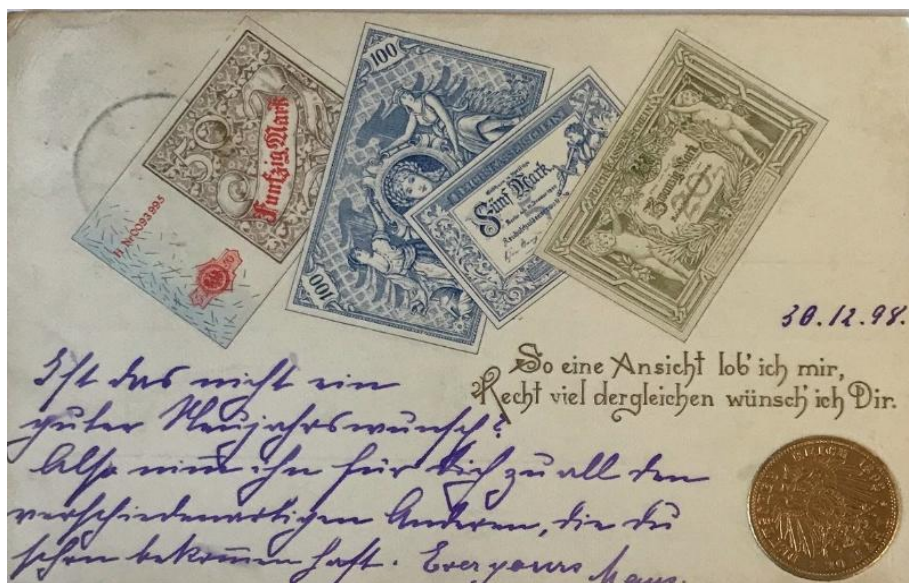 Fünfzig Mark
Nr 0093995
100
100
Fünf Mark
Zwanzig Mark
30.12.98.
So eine Ansicht lob' ich mir,
Recht viel dergleichen wünsch' ich Dir.
Ist das nicht ein
guter Neujahrswunsch?
Also nim̄ ihn für Dich zu all den
verschiedenartigen Anderen, die du
schon bekom̄en hast. Ever yours